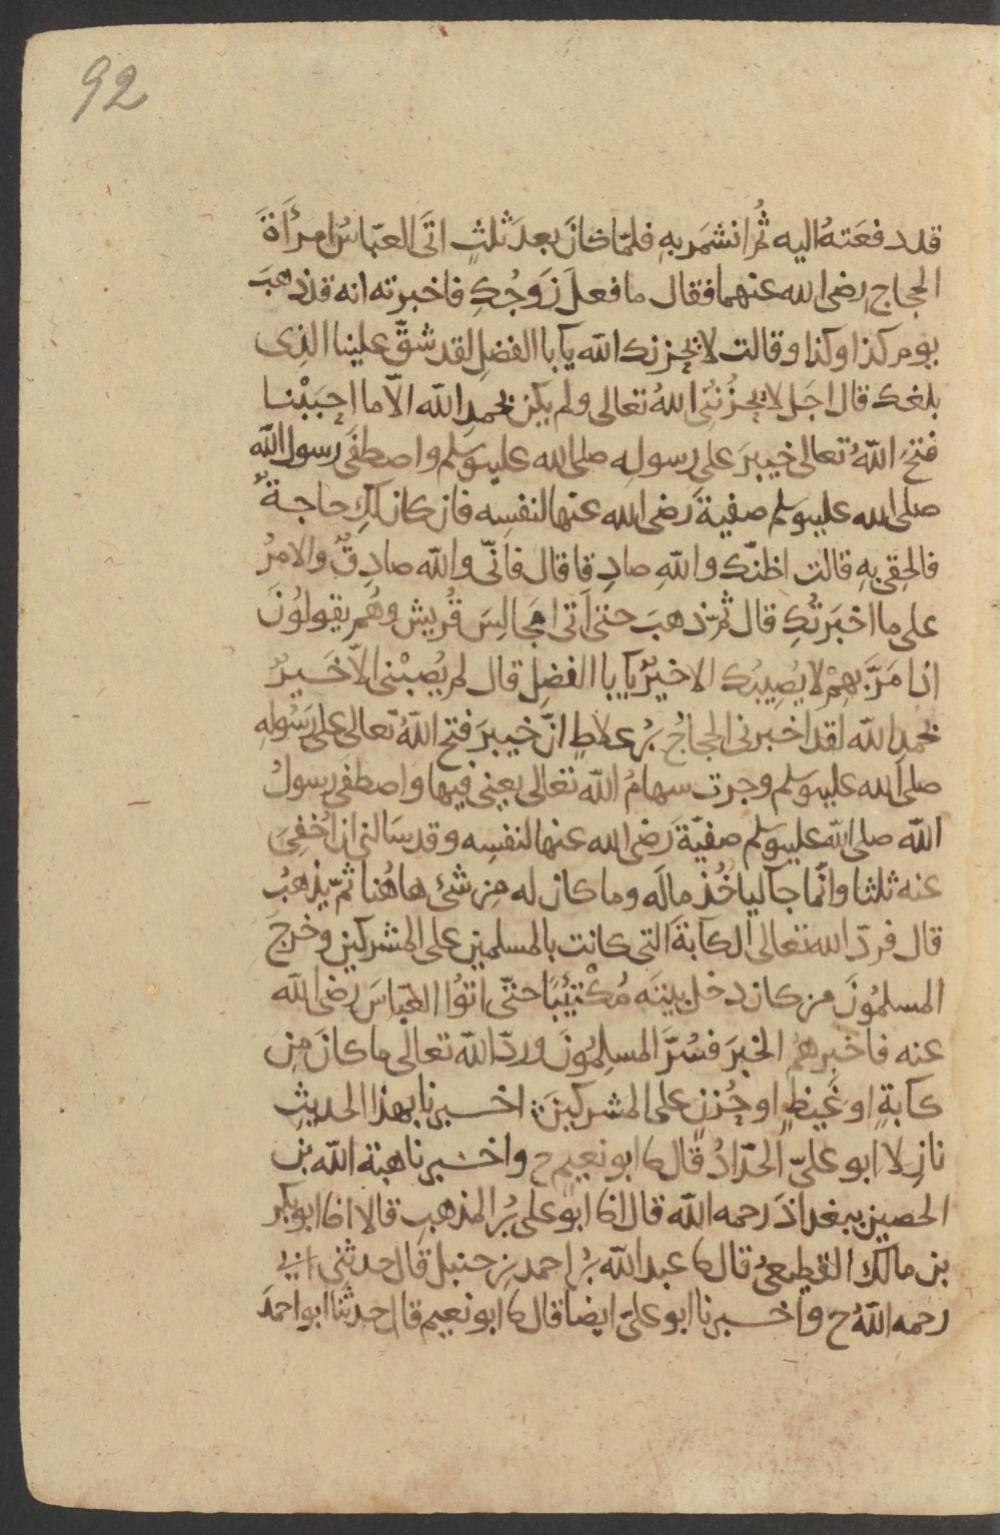 92
قد دفعَتهُ اليه ثُم انشمَر بهِ فلمّا كانَ بعدَ ثلثٍ اتَى العبّاسُ امرأَةَ
الحجاج رضى الله عنهما فقال ما فعلَ زَوجُكِ فاخبرته انه قد ذهبَ
يوم كذا وكذا وقالت لا يحزنك الله يآبا الفضلِ لقد شقَّ علينا الذِى
بلغك قال اجَل لا يحزُننى اللهُ تعالى ولم يكن بحمدِ الله الّا ما احبَبْنا
فتحَ اللهُ تعالى خيبرَ على رسولِه صلى الله عليه وسَلم واصطفَى رسول الله
صلى الله عليه وسلم صفيةَ رَضى الله عنها لنفسِه فان كان لكِ حاجةٌ
فالحِقى بهِ قالت اظنّك واللهِ صادِقا قال فانّى والله صادِقٌ والامرُ
على ما اخبَرتُكِ قال ثمّ ذهبَ حتى اَتى مجالِسَ قُريش وهُم يقولُونَ
اذا مَرَّ بهِمْ لا يُصِيبُك الا خيرٌ يآبا الفضلِ قال لم يُصِبْنى الاّ خَيرٌ
بحمدِ الله لقد اخبرنى الحجاجُ بْرُ علاطٍ انّ خيبرَ فتح اللهُ تعالى على رَسُولهِ
صلى الله عليه وسلم وجرت سهامُ الله تعالى يعنى فيها واصطفَى رسولُ
الله صلى الله عليه وسَلم صفيّةَ رَضى الله عنها لنفسِه وقد سَالنى ان اُخفِىَ
عنه ثلثا وانّما جآ لياخُذ مالَه وما كان له مِن شئ هاهُنا ثمّ يذهبُ
قال فردّ الله تعالى الكآبةَ التى كانت بالمسلمين على المشركين وخرجَ
المسلمُونَ من كان دخل بيتَه مُكْتَئِبًا حتّى اتوُا العبّاسَ رضى الله
عنه فاخبرهُم الخبرَ فسُرَّ المسلِمُونَ وردّ الله تعالى ما كانَ مِن
كآبةٍ او غَيظٍ او حُزنٍ على المشركينَ اخبرنا بهذا الحديثِ
نازلا ابو علىّ الحدّادُ قال نا ابو نعيم ح واخبرنا هبة الله بن
الحصين ببغداذَ رحمه الله قال انا ابو على بْرُ المذهبِ قالا انا ابو بكر
بن مالك القطيعىُ قال نا عبد الله بْرُ احمد بن حنبل قال حدثنى ابى
رحمه اللهُ ح واخبرنا ابو علىّ ايضا قال نا ابو نعيم قال حدثنا ابو احمدَ